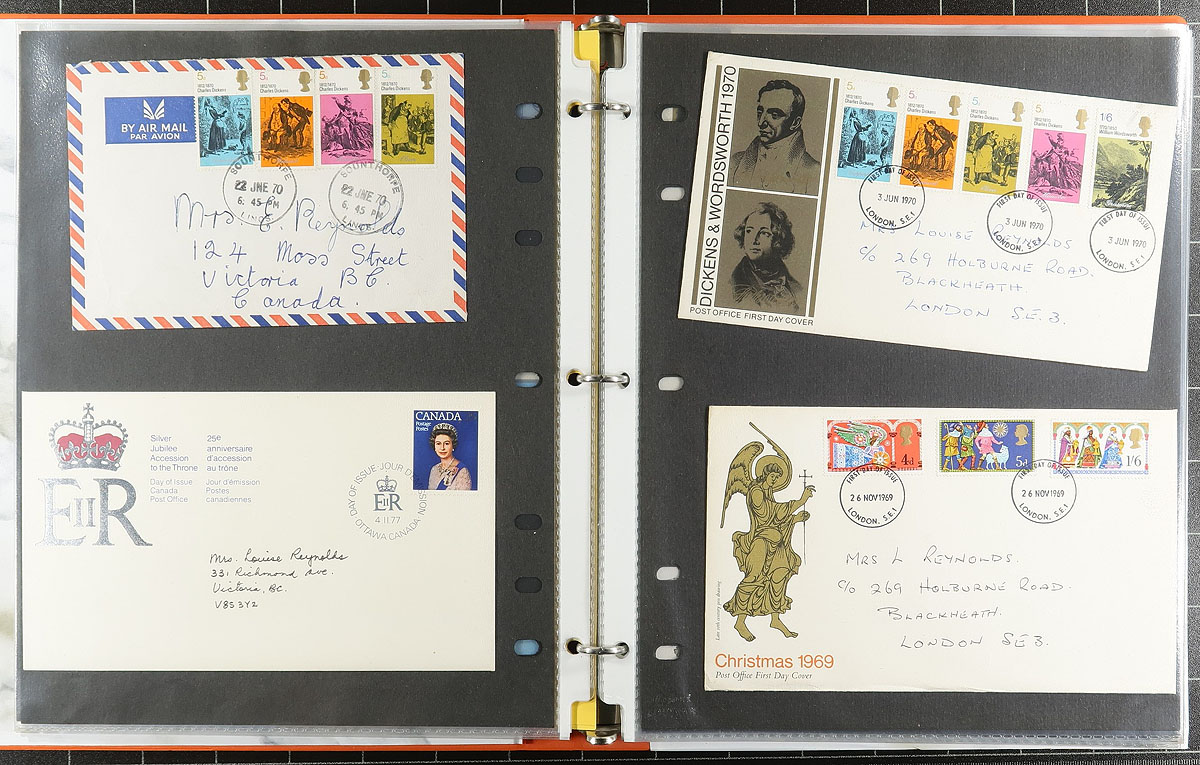 BY AIR MAIL
PAR AVION
5d
1812/1870
Charles Dickens
5d
1812/1870
Charles Dickens
5d
1812/1870
Charles Dickens
5d
1812/1870
Charles Dickens
SCUNTHORPE
22 JNE 70
6. 45 PM
LINCS
SCUNTHORPE
22 JNE 70
6. 45 PM
LINCS
Mrs E. Reynolds
124 Moss Street
Victoria BC.
Canada.
Silver
Jubilee
Accession
to the Throne
25e
anniversaire
d'accession
au trône
Day of Issue
Canada
Post Office
Jour d'émission
Postes
canadiennes
EIIR
CANADA
Postage
Postes
DAY OF ISSUE JOUR D'ÉMISSION
EIIR
4 II 77
OTTAWA CANADA
Mrs. Louise Reynolds
331 Richmond Ave.
Victoria, BC.
V8S 3Y2
DICKENS & WORDSWORTH 1970
POST OFFICE FIRST DAY COVER
5d
1812/1870
Charles Dickens
5d
1812/1870
Charles Dickens
5d
1812/1870
Charles Dickens
5d
1812/1870
Charles Dickens
1/6
1770/1850
William Wordsworth
FIRST DAY OF ISSUE
3 JUN 1970
LONDON, S.E.1
FIRST DAY OF ISSUE
3 JUN 1970
LONDON, S.E.1
FIRST DAY OF ISSUE
3 JUN 1970
LONDON, S.E.1
MRS LOUISE REYNOLDS
c/o 269 HOLBURNE ROAD.
BLACKHEATH,
LONDON S.E.3.
4d
5d
1/6
FIRST DAY OF ISSUE
26 NOV 1969
LONDON, S.E.1
FIRST DAY OF ISSUE
26 NOV 1969
LONDON, S.E.1
MRS L REYNOLDS.
c/o 269 HOLBURNE ROAD
BLACKHEATH.
LONDON SE3.
Christmas 1969
Post Office First Day Cover